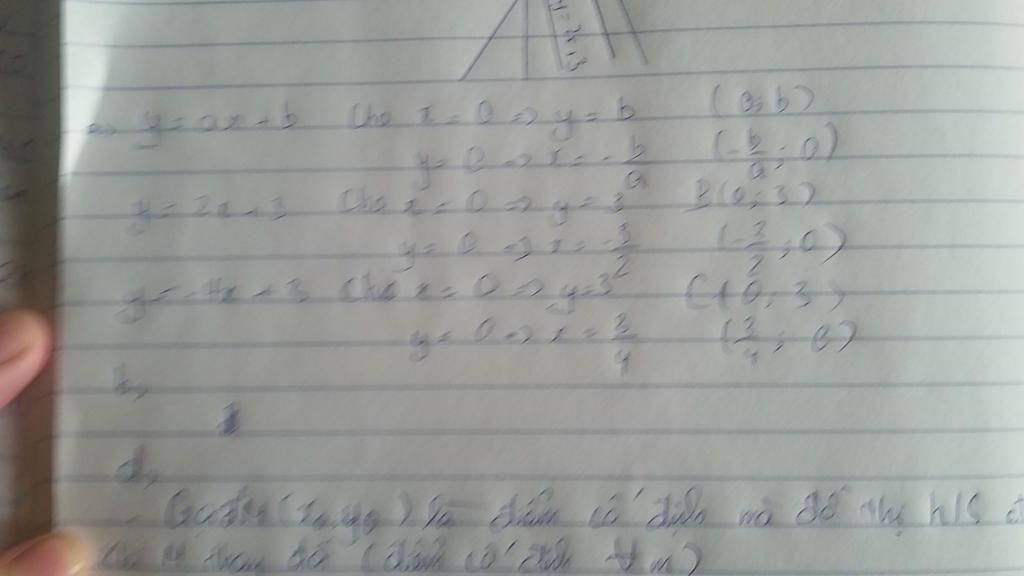 y = 2x + 3
a, y = ax + b Cho x = 0 => y = b (0; b)
y = 0 => x = -b/a (-b/a; 0)
y = 2x + 3 Cho x = 0 => y = 3 B(0; 3)
y = 0 => x = -3/2 (-3/2; 0)
y = -4x + 3 Cho x = 0 => y = 3 C(0; 3)
y = 0 => x = 3/4 (3/4; 0)
b,
d,
- Gọi (x0, y0) là điểm cố định mà đồ thị h/s
(điểm cố định ∀m)